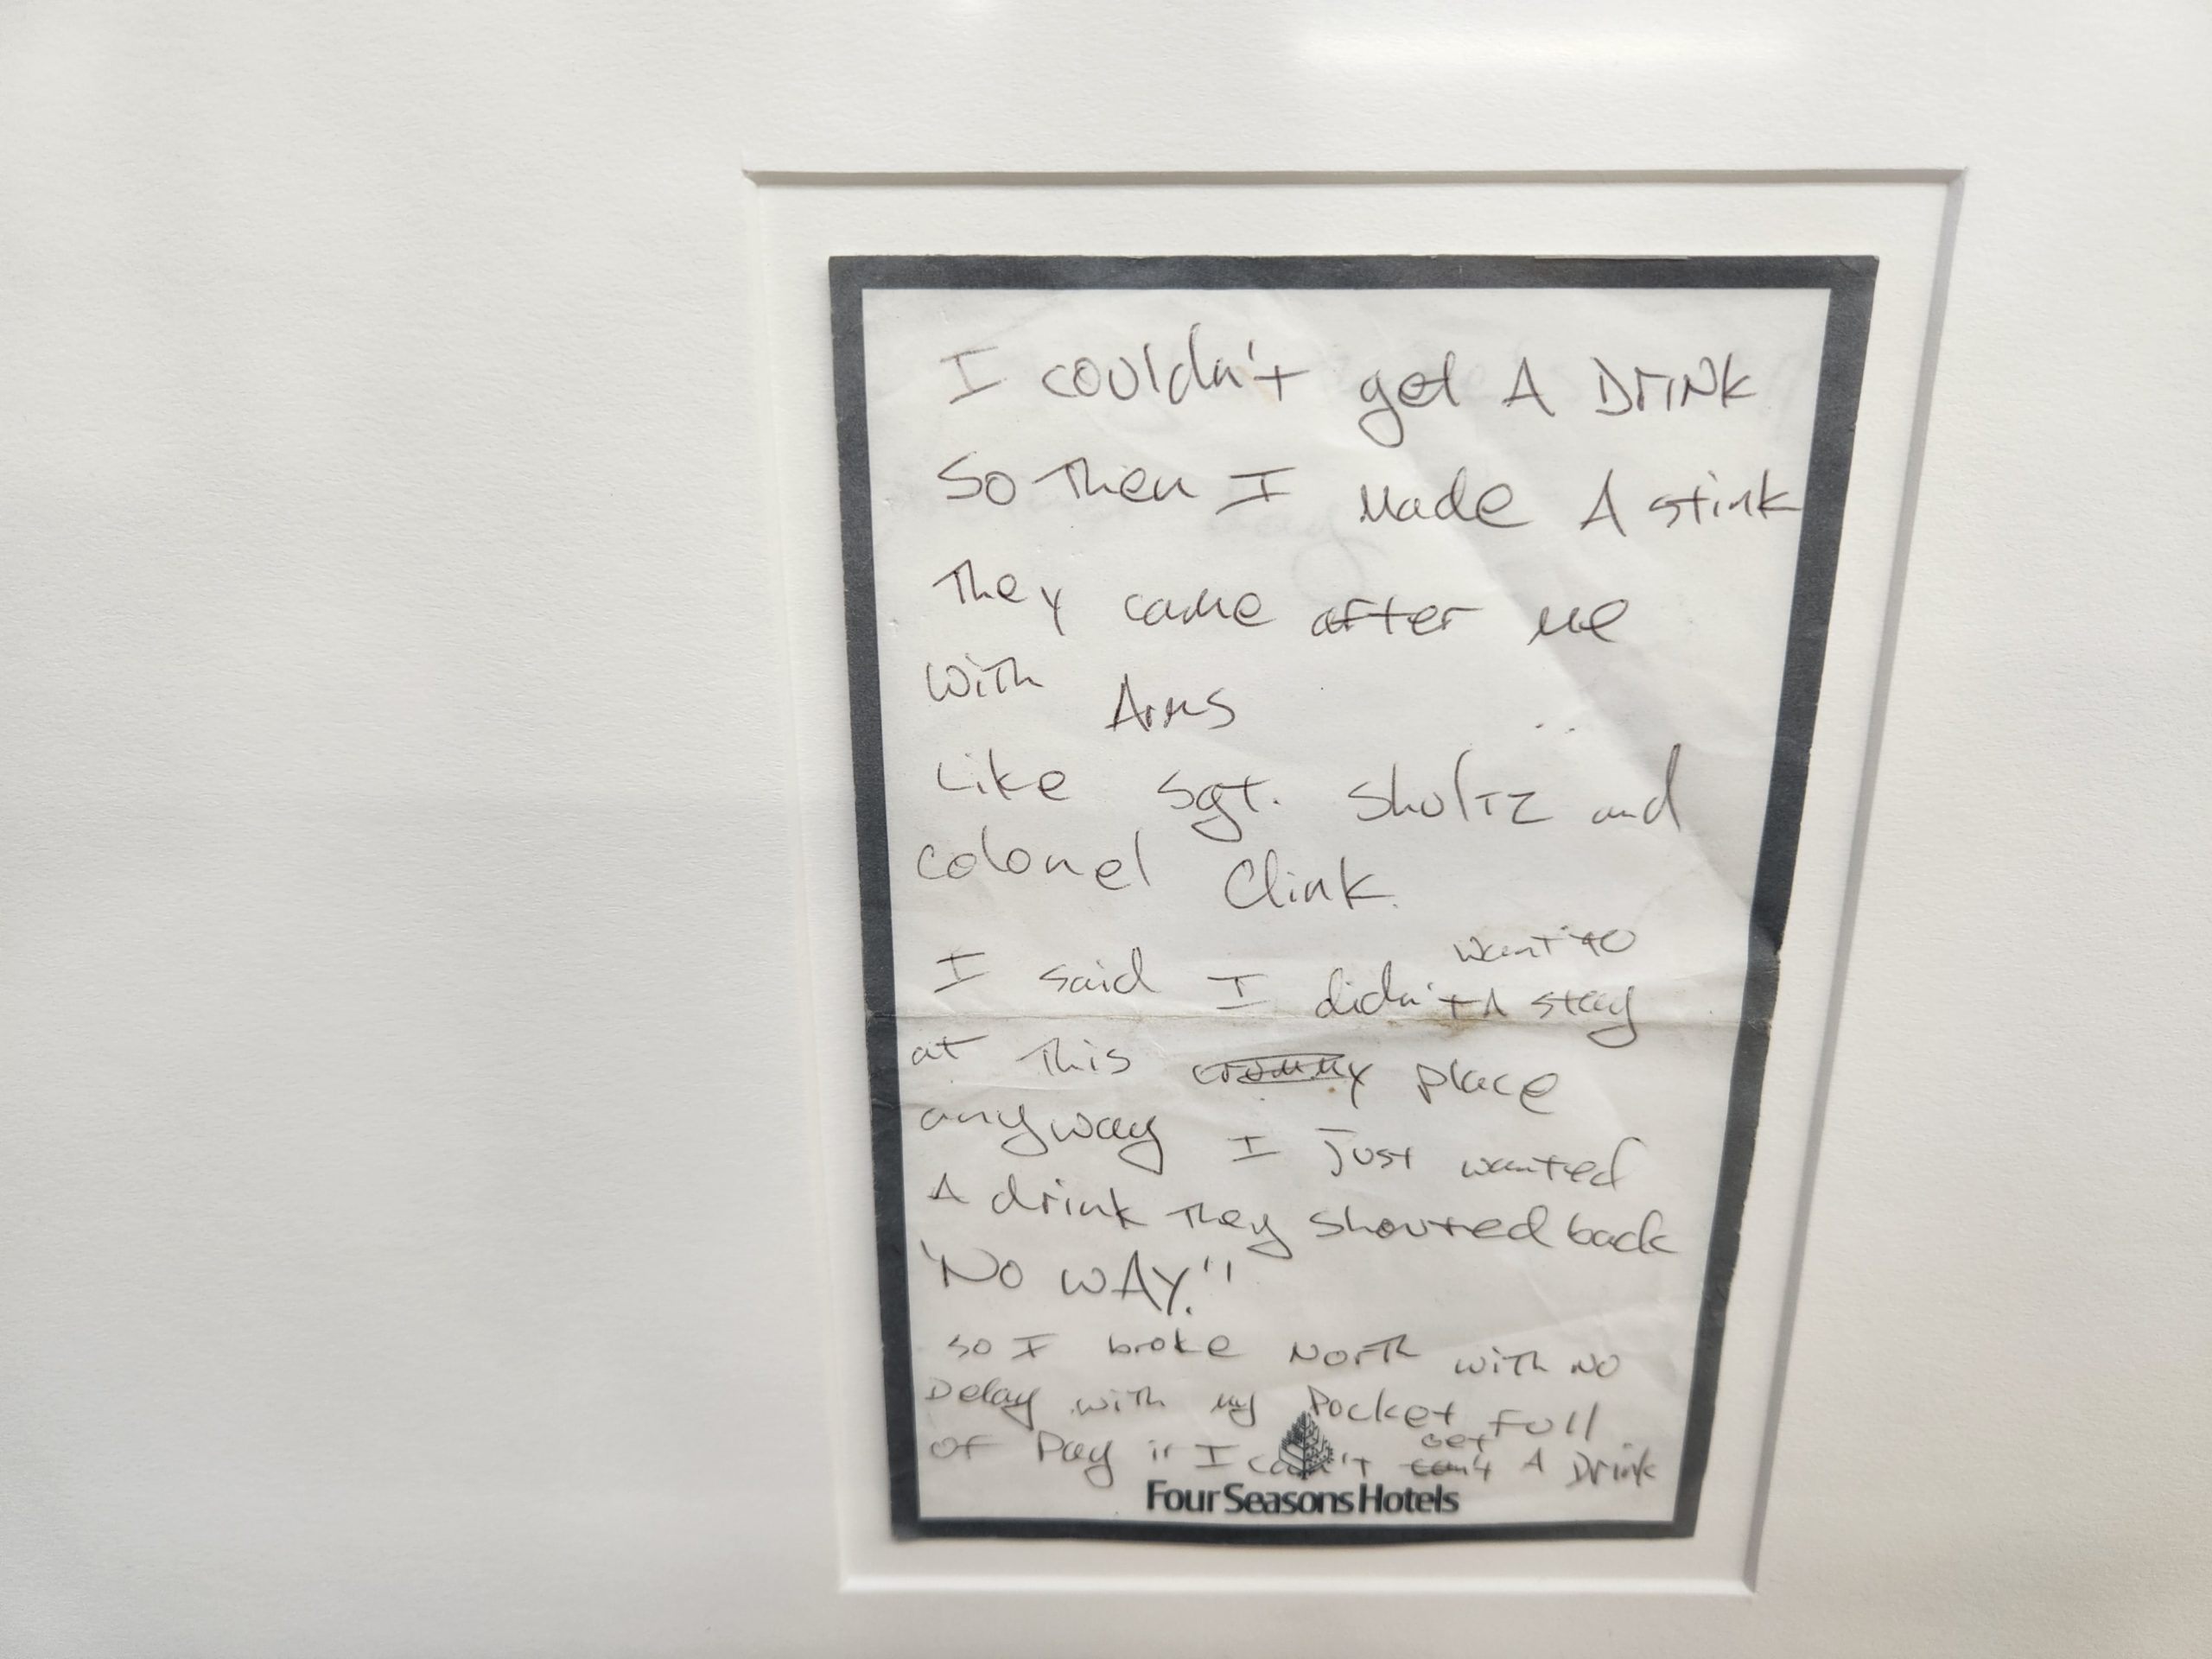 I couldn't get A DrINK
So Then I Made A stink
They came after me
with Arms
Like sgt. Shultz and
colonel Clink.
want to
I said I didn't ʌ stay
at This crummy place
anyway I Just wanted
A drink They shouted back
"No wAy."
so I broke North with No
Delay with my Pocket Full
of Pay if I can't get A Drink
Four Seasons Hotels